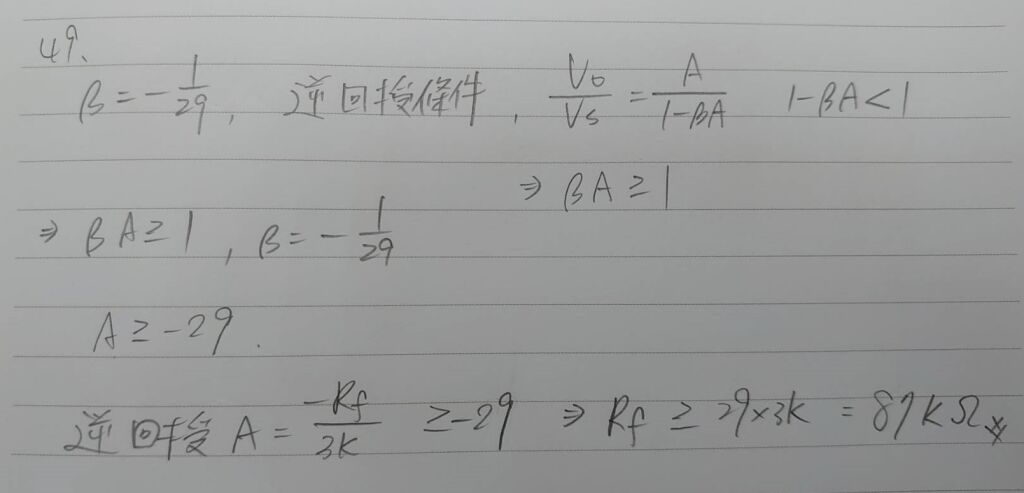 49.
β = -1/29, 逆回授條件, Vo/Vs = A/(1-βA) 1-βA<1
⇒ βA ≥ 1
⇒ βA ≥ 1, β = -1/29
A ≥ -29.
逆回授 A = -Rf/3K ≥ -29 ⇒ Rf ≥ 29×3K = 87KΩ